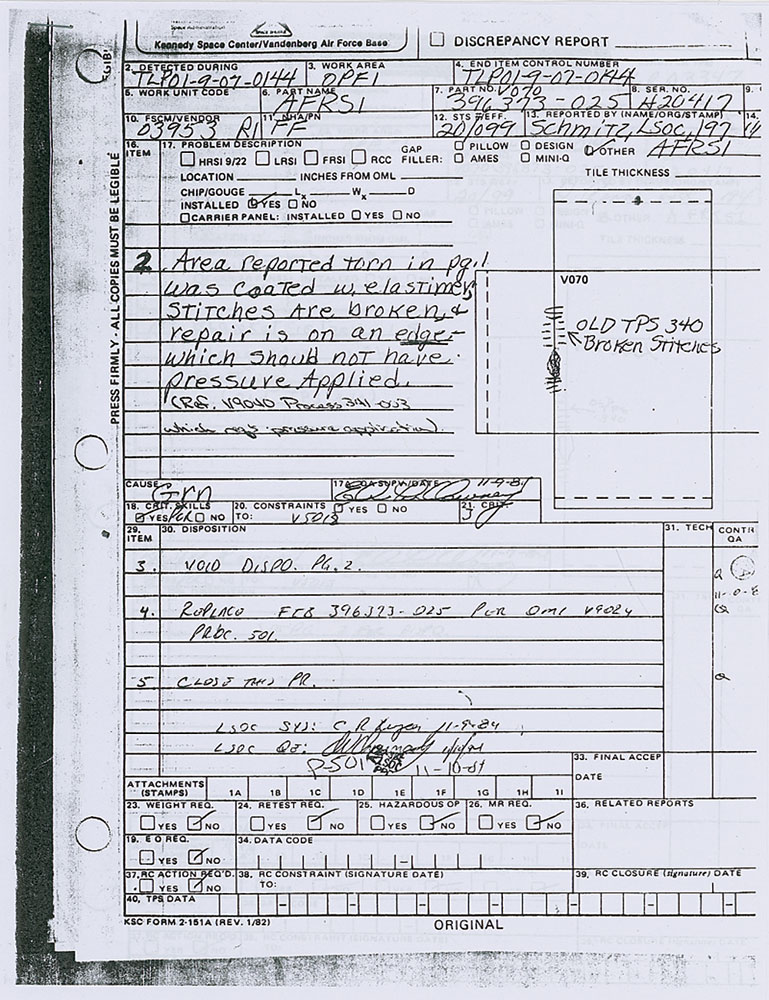 Kennedy Space Center/Vandenberg Air Force Base
DISCREPANCY REPORT
2. DETECTED DURING
TLP01-9-07-0144
3. WORK AREA
OPF1
4. END ITEM CONTROL NUMBER
TLP01-9-07-0144
5. WORK UNIT CODE
6. PART NAME
AFRSI
7. PART NO. V070
396373-025
8. SER. NO.
A20417
9.
10. FSCM/VENDOR
03953 RI
11. NHA/PN
FF
12. STS #/EFF.
20/099
13. REPORTED BY (NAME/ORG/STAMP)
Schmitz, LSoc, 197
14.
16.
ITEM
17. PROBLEM DESCRIPTION
HRSI 9/22 LRSI FRSI RCC
GAP FILLER: PILLOW DESIGN OTHER AFRSI
AMES MINI-Q
LOCATION INCHES FROM OML
TILE THICKNESS
CHIP/GOUGE L x W x D
INSTALLED YES NO
CARRIER PANEL: INSTALLED YES NO
2 Area reported torn in pg. 1
was coated w. elastimer,
Stitches Are broken, &
repair is on an edge-
which should not have
pressure Applied.
(Ref. V9040 Process 341-003
which reqs pressure application).
V070
OLD TPS 340
Broken Stitches
PRESS FIRMLY - ALL COPIES MUST BE LEGIBLE
CAUSE
Grn
QA SUPV/DATE
18. CRIT. SKILLS
YES NO
20. CONSTRAINTS
TO:
YES NO
21. CRIT.
3
29.
ITEM
30. DISPOSITION
31. TECH
CONTR
QA
3. VOID DISPO. PG. 2.
4. REPLACE FIB 396373-025 PER OMI V9024
PROC. 501.
5. CLOSE THIS PR.
LSOC SYS: C R 11-9-84
LSOC QE:
11-10-84
33. FINAL ACCEP
DATE
ATTACHMENTS
(STAMPS)
1A 1B 1C 1D 1E 1F 1G 1H 1I
23. WEIGHT REQ.
YES NO
24. RETEST REQ.
YES NO
25. HAZARDOUS OP
YES NO
26. MR REQ.
YES NO
36. RELATED REPORTS
19. E O REQ.
YES NO
34. DATA CODE
37. RC ACTION REQ'D.
YES NO
38. RC CONSTRAINT (SIGNATURE DATE)
TO:
39. RC CLOSURE (signature) DATE
40. TPS DATA
KSC FORM 2-151A (REV. 1/82)
ORIGINAL